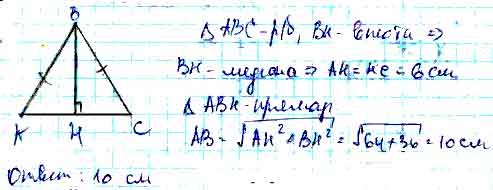 B
A H C
Δ ABC - р/б, BH - высота ⇒
BH - медиана ⇒ AH = HC = 6 см
Δ ABH - прямоуг
AB = √AH² + BH² = √64+36 = 10 см
Ответ: 10 см